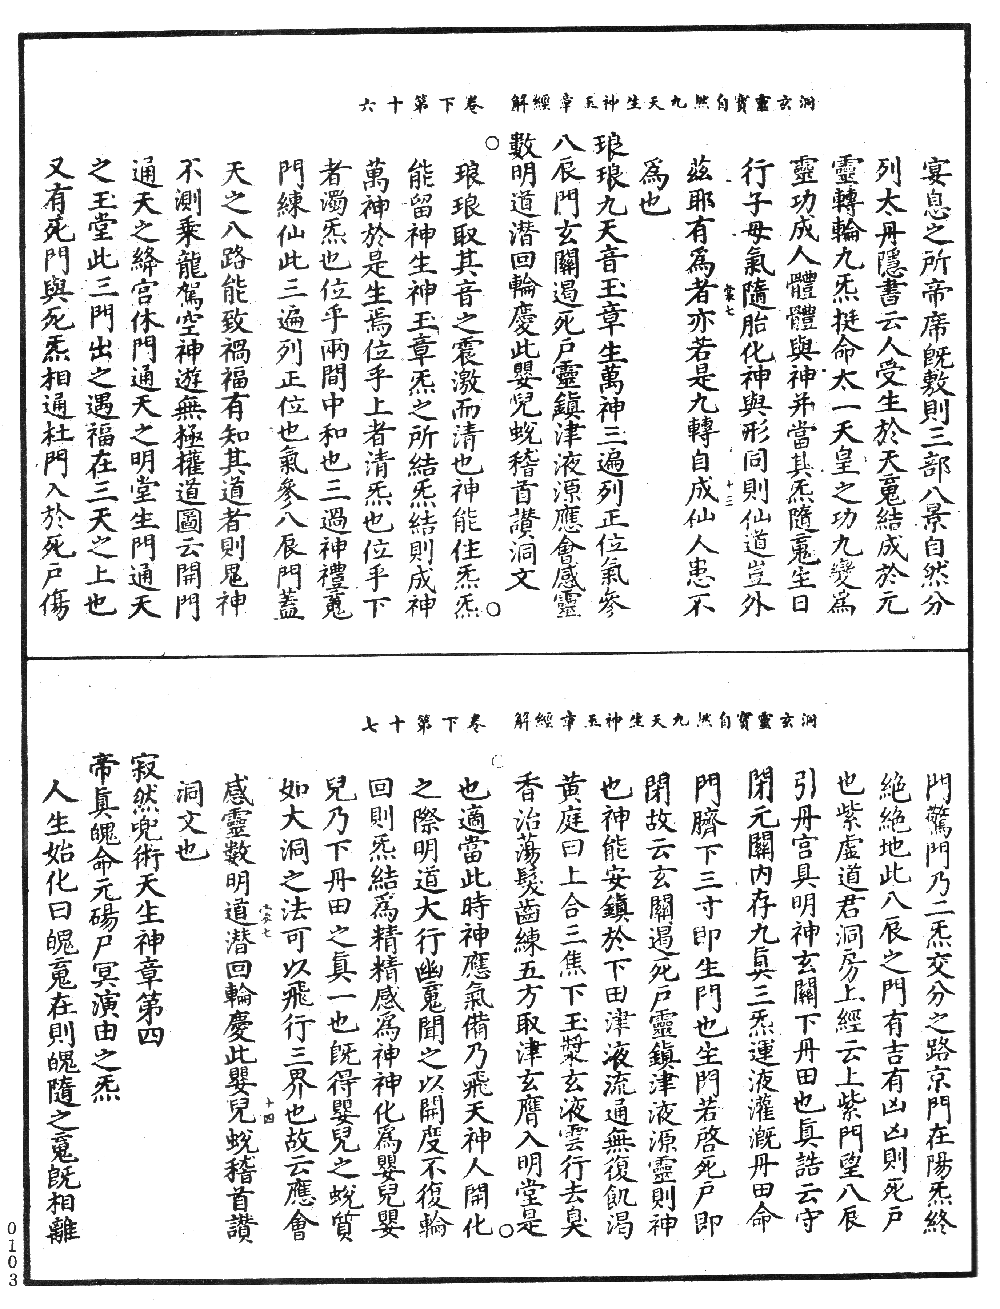 洞玄靈寶自然九天生神玉章經解　卷下第十六
宴息之所帝席旣敷則三部八景自然分
列太丹隱書云人受生於天䰟結成於元
靈轉輪九炁挺命太一天皇之功九變爲
靈功成人體體與神并當其炁隨䰟生日
行子母氣隨胎化神與形同則仙道豈外
裳七
十三
茲耶有爲者亦若是九轉自成仙人患不
爲也
琅琅九天音玉章生萬神三遍列正位氣參
八辰門玄關遏死戸靈鎭津液源應會感靈
數明道潛回輪慶此嬰兒蛻稽首讃洞文
琅琅取其音之震激而清也神能住炁炁
能留神生神玉章炁之所結炁結則成神
萬神於是生焉位乎上者清炁也位乎下
者濁炁也位乎兩間中和也三過神禮䰟
門練仙此三遍列正位也氣參八辰門蓋
天之八路能致禍福有知其道者則鬼神
不測乘龍駕空神遊無極權道圖云開門
通天之絳宮休門通天之明堂生門通天
之玉堂此三門出之遇福在三天之上也
又有死門與死炁相通杜門入於死戸傷
洞玄靈寶自然九天生神玉章經解　卷下第十七
門驚門乃二炁交分之路京門在陽炁終
絶絶地此八辰之門有吉有凶凶則死戸
也紫虛道君洞房上經云上紫門望八辰
引丹宮具明神玄關下丹田也眞誥云守
閉元關內存九眞三炁運液灌漑丹田命
門臍下三寸即生門也生門若啓死戸即
閉故云玄關遏死戸靈鎭津液源靈則神
也神能安鎭於下田津液流通無復飢渴
黃庭曰上合三焦下玉漿玄液雲行去臭
香治蕩髮齒練五方取津玄膺入明堂是
也適當此時神應氣備乃飛天神人開化
之際明道大行幽䰟聞之以開度不復輪
回則炁結爲精精感爲神神化爲嬰兒嬰
兒乃下丹田之眞一也旣得嬰兒之蛻質
如大洞之法可以飛行三界也故云應會
裳七
十四
感靈數明道潛回輪慶此嬰兒蛻稽首讃
洞文也
寂然兜術天生神章第四
帝眞魄命元碭尸冥演由之炁
人生始化曰魄䰟在則魄隨之䰟旣相離
0103